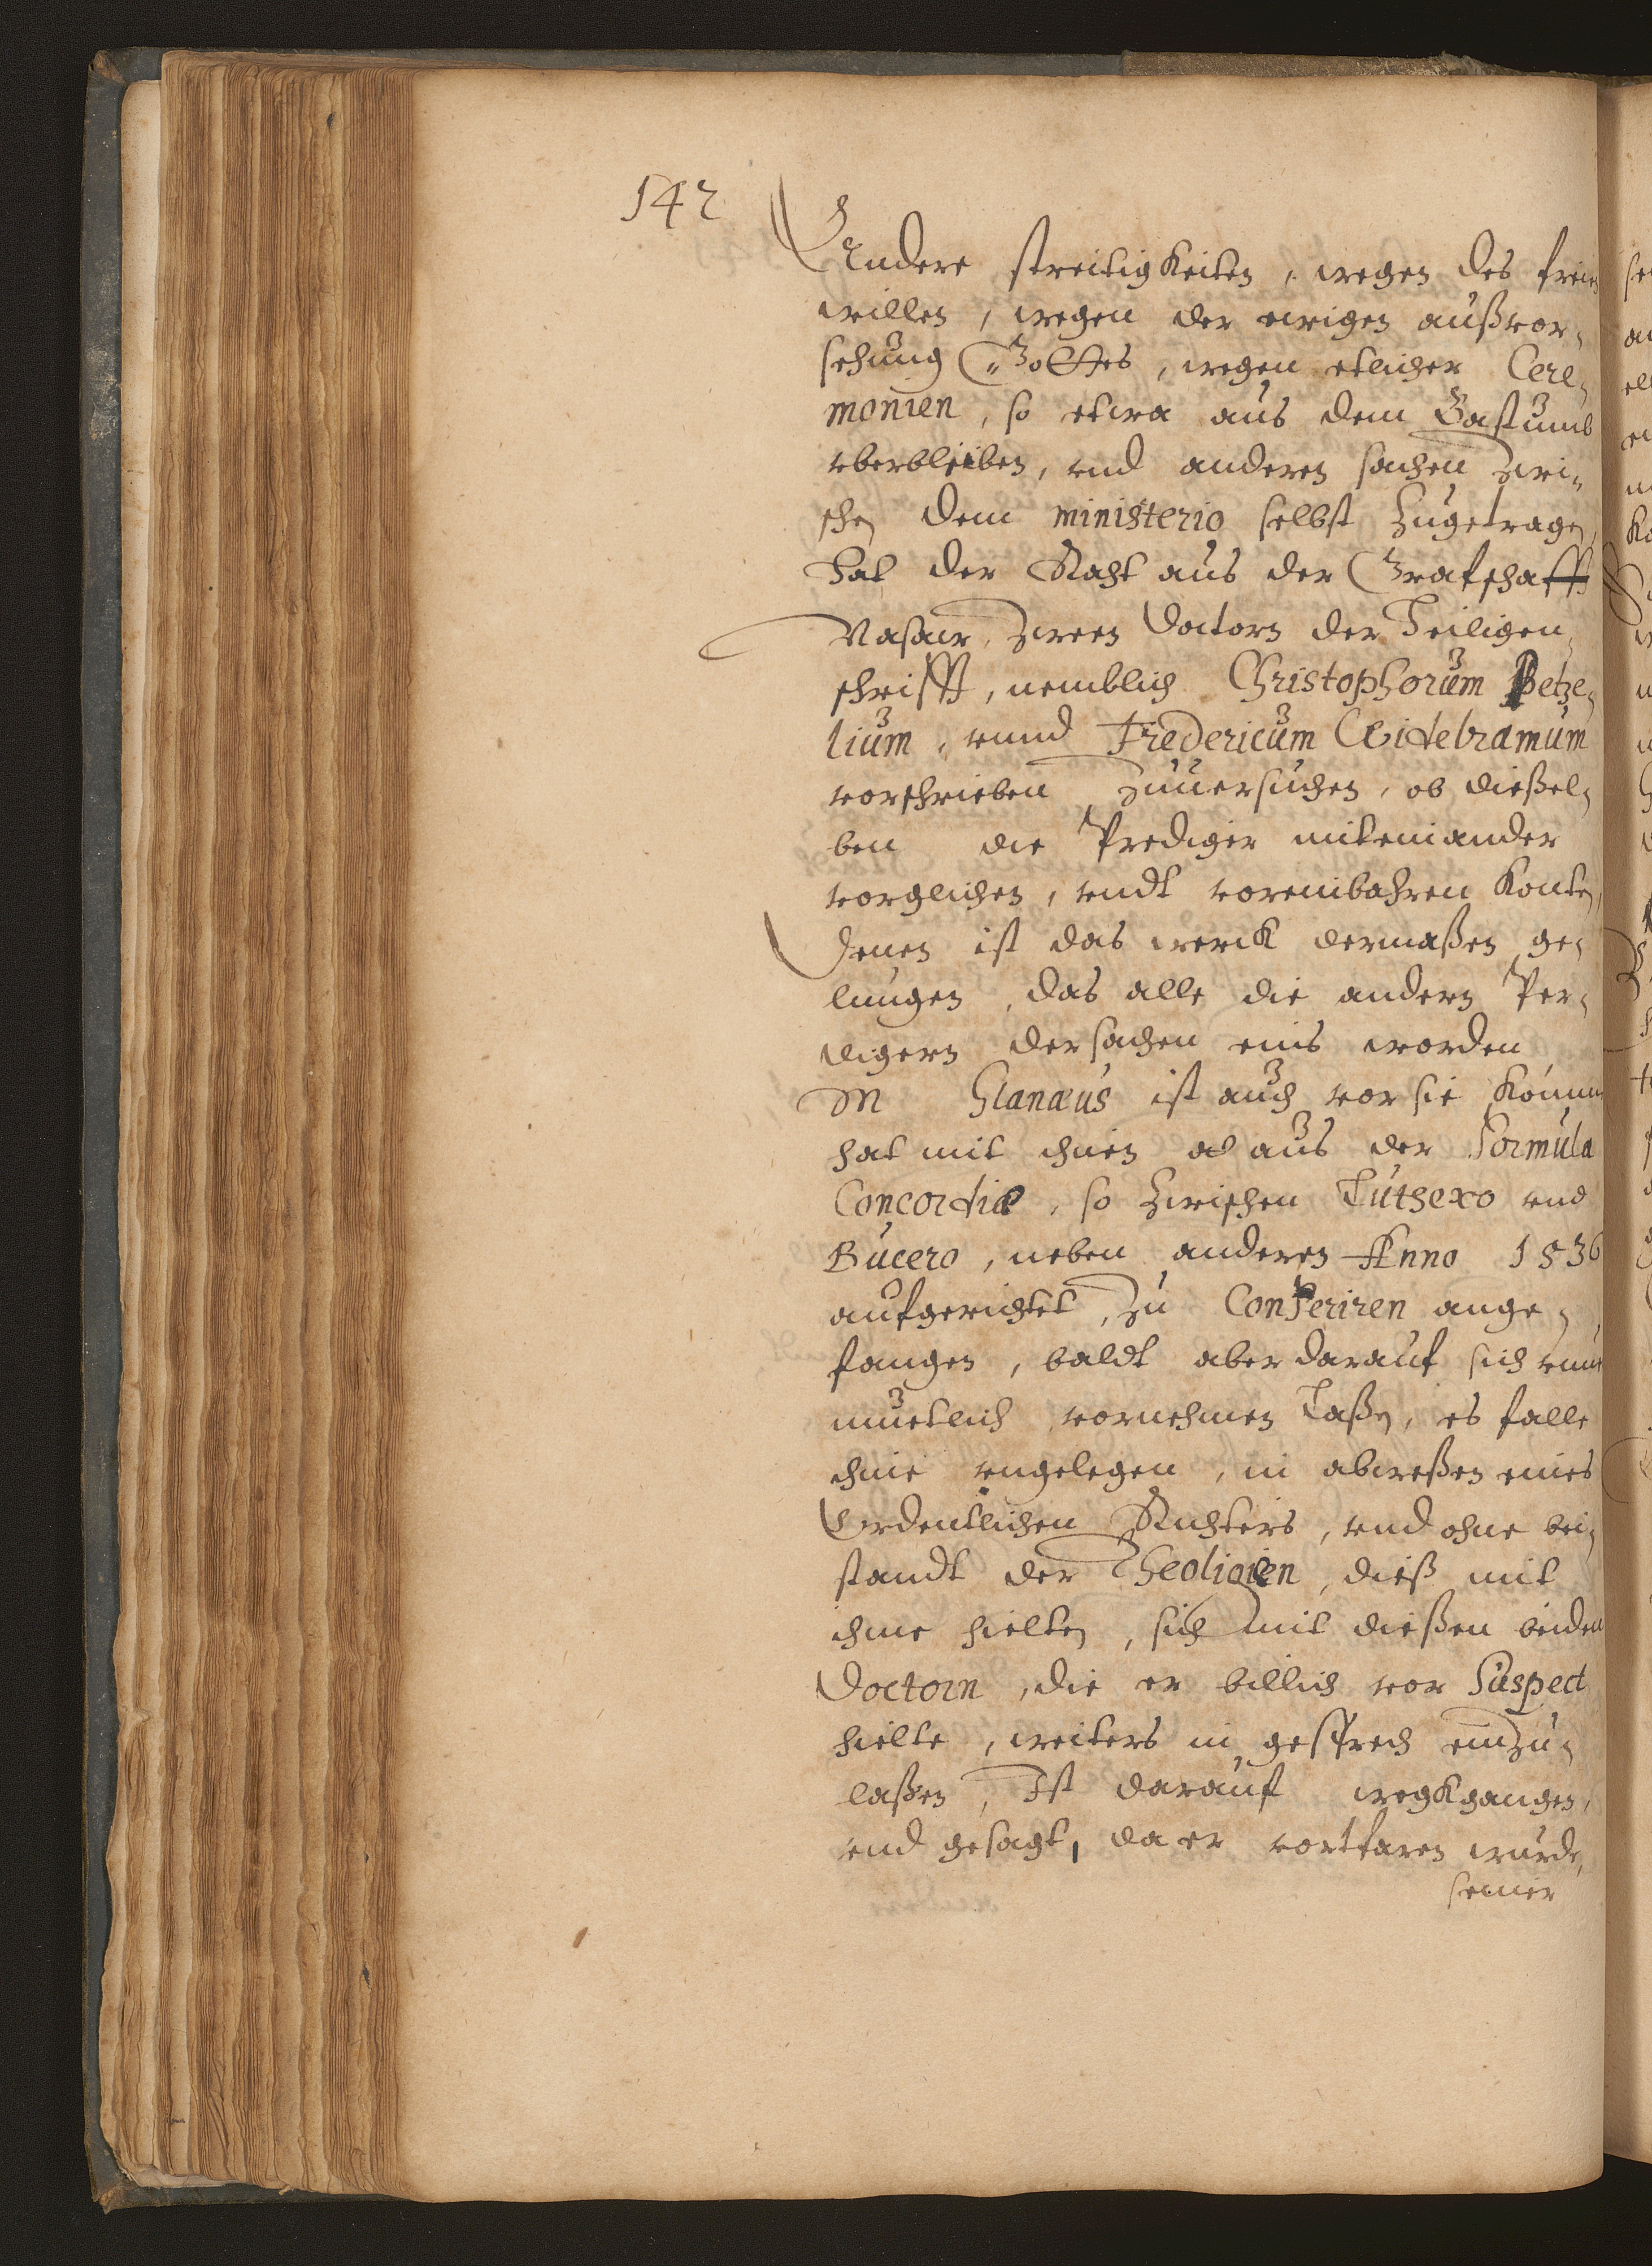 142
Andere streitigkeiten, wegen des freien
willen, wegen der ewigen außvor-
sehung Gottes, wegen etlicher Cere-
monien, so etwa aus dem Bastumb
vberblieben, vnd anderen sachen zwi-
schen dem ministerio selbst zugetragen,
Hat der Raht aus der Grafschafft
Nassaw, zween Doctorn der Heiligen
schrifft, nemblich Christophorum Petze-
lium, vnnd Fredericum Widebramum
vorschrieben zuuersuchen, ob dießel-
ben die Prediger miteinander
vorglichen, vndt voreinbahren konten,
Jenen ist das werck dermaßen ge-
lungen, das alle die andern Per-
digern der sachen eins worden
M Glanæus ist auch vor sie kommen
hat mit ihnen aus der Formula
Concordiæ, so zwischen Luthero vnd
Bucero, neben anderen Anno 1536
aufgerichtet, zu Conferiren ange-
fangen, baldt aber darauf sich
muetlich vornehmen laßen, es falle
ihme vngelegen, in abweßen eines
Ordentlichen Richters, vnd ohne bei-
standt der Theoligien, dieß mit
ihme hielten, sich mit dießen beiden
Doctorn, die er billich vor Suspect
hielte, weiters in gesprech einzu-
laßen, Ist darauf wegkgangen,
vnd gesagt, da er vortfaren wurde,
seiner